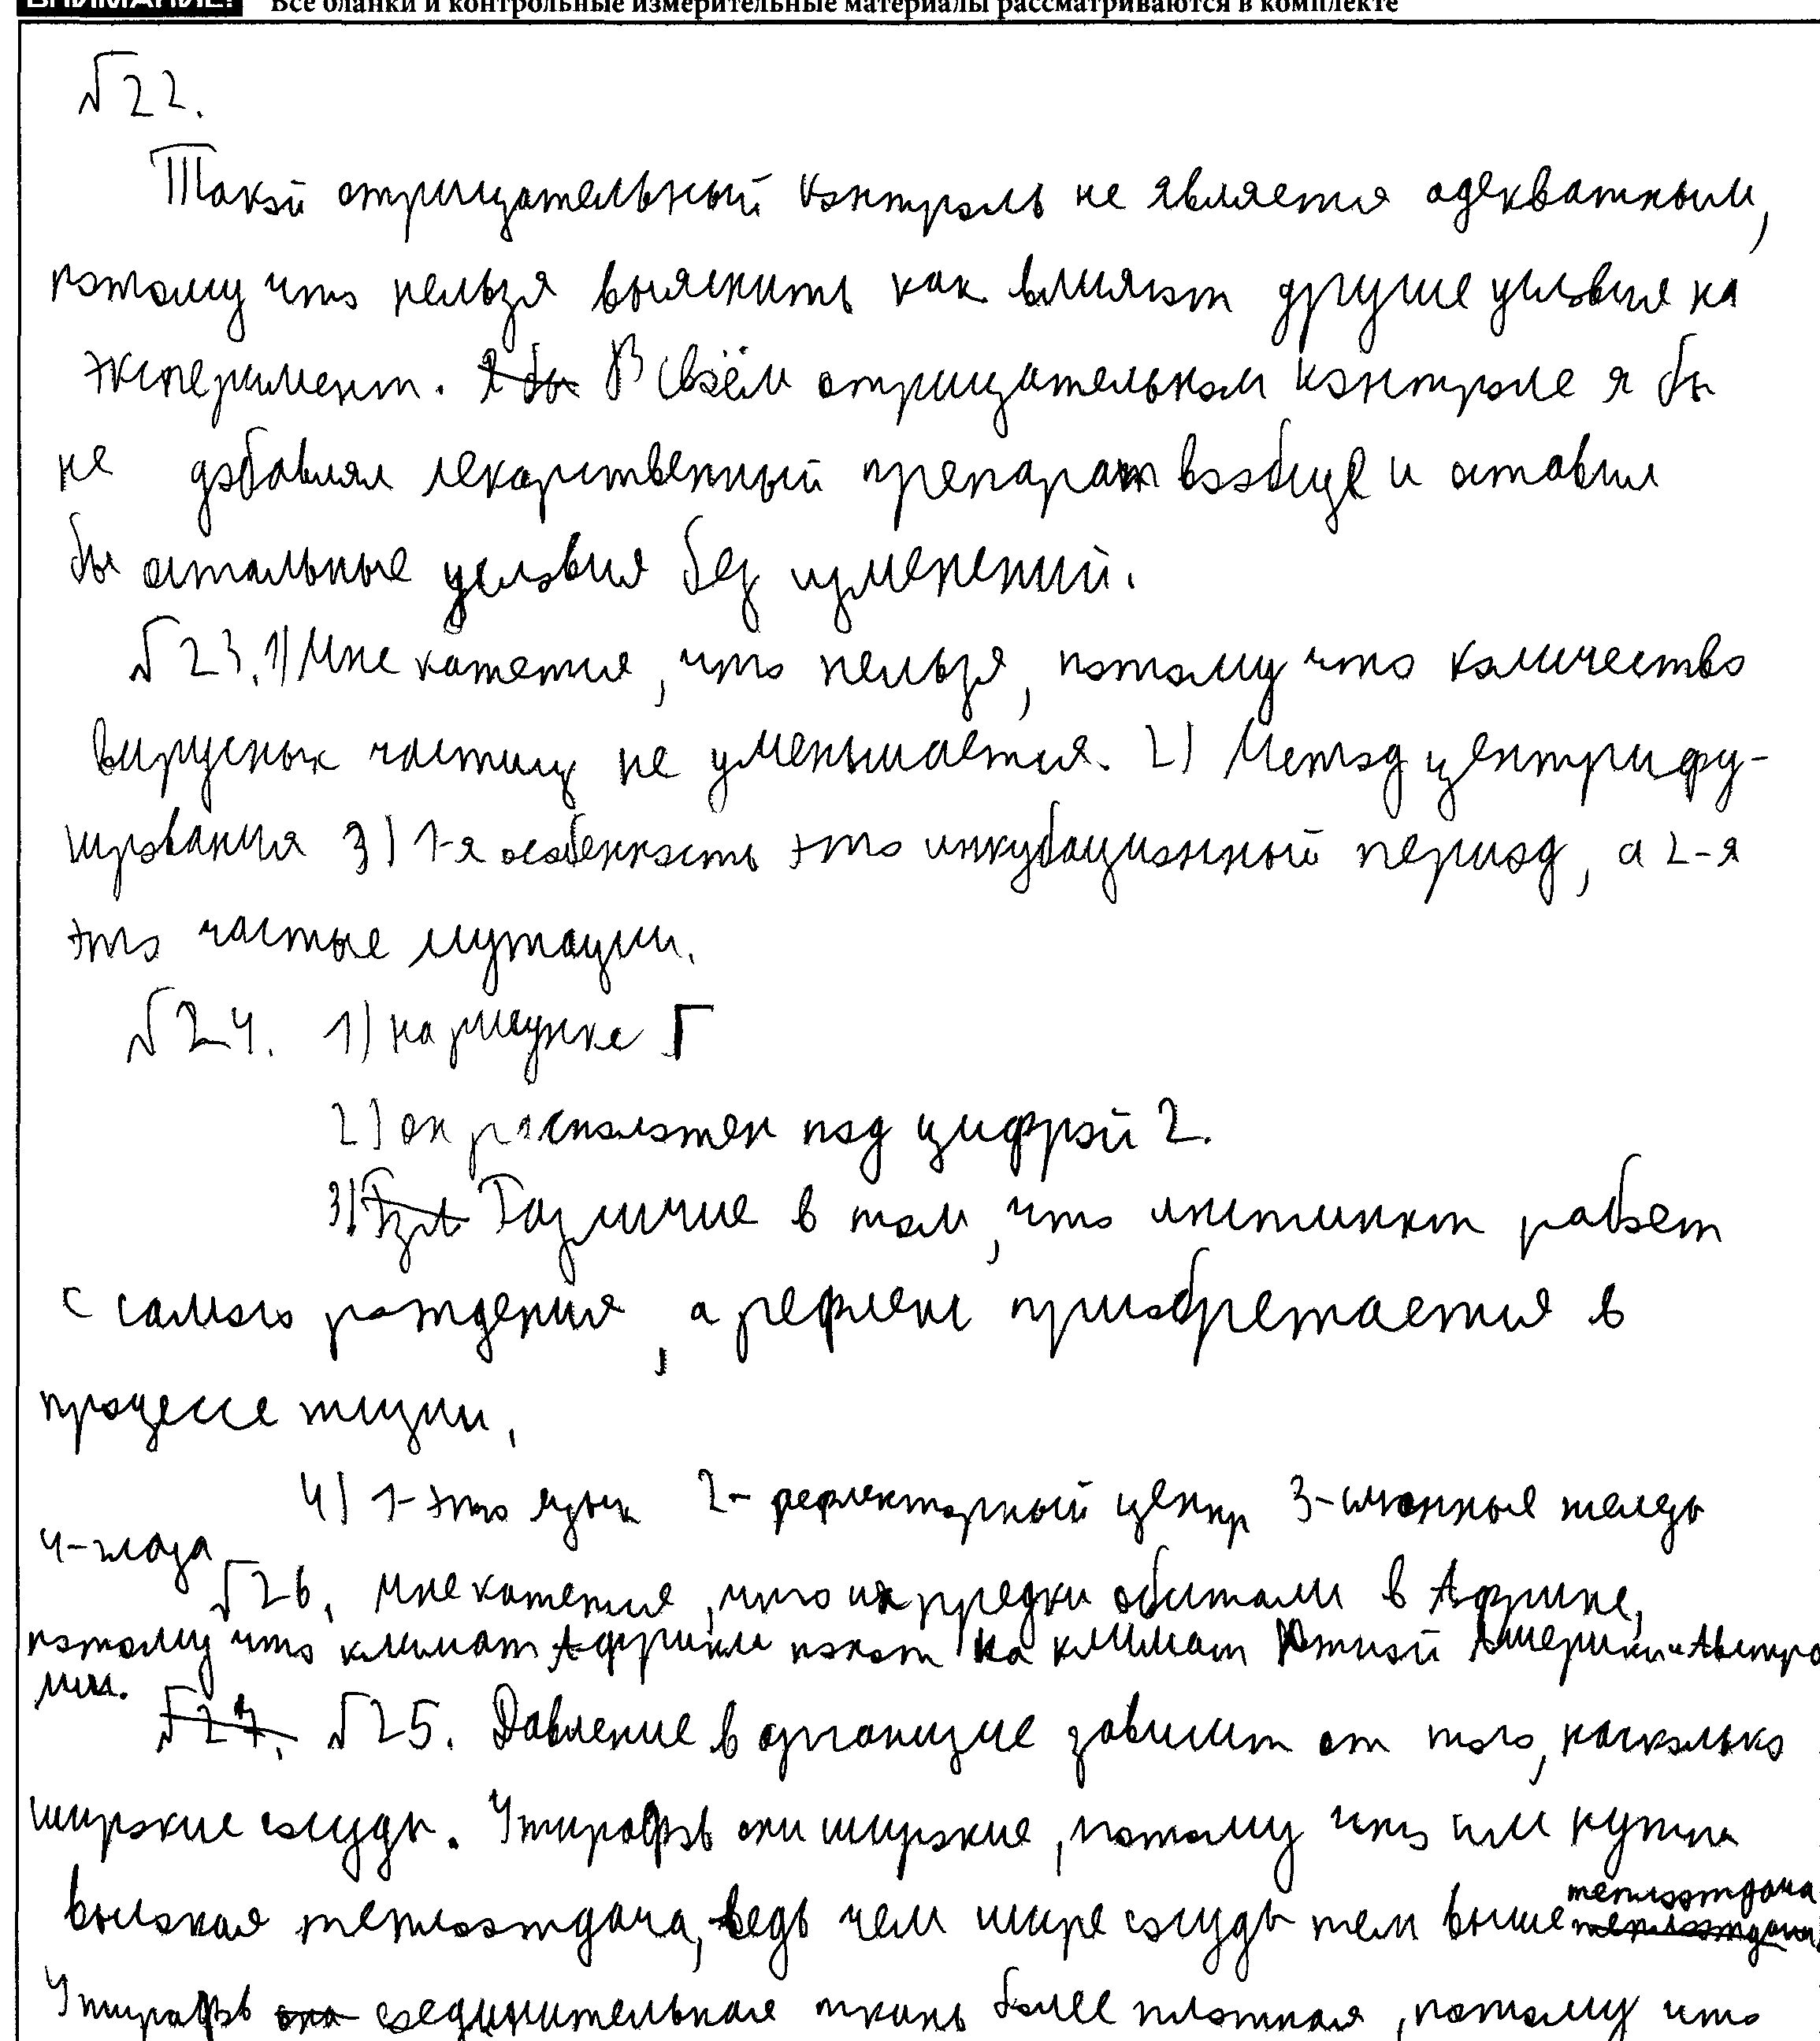 ВНИМАНИЕ! Все бланки и контрольные измерительные материалы рассматриваются в комплекте
№22.
Такой отрицательный контроль не является адекватным,
потому что нельзя выяснить как влияют другие условия на
эксперимент. Я бы В своём отрицательном контроле я бы
не добавлял лекарственный препарат вообще и оставил
бы остальные условия без изменений.
№23. 1) Мне кажется, что нельзя, потому что количество
вирусных частиц не уменьшается. 2) Метод центрифу-
гирования 3) 1-я особенность это инкубационный период, а 2-я
это частые мутации.
№24. 1) на рисунке Г
2) он расположен под цифрой 2.
3) Различие в том, что инстинкт работ
с самого рождения, а рефлекс приобретается в
процессе жизни.
4) 1-это язык 2- рефлекторный центр 3-слюнные железы
4-глаза
№26. Мне кажется, что их предки обитали в Африке,
потому что климат Африки похож на климат Южной Америки и Австра
лии.
№27. №25. Давление в организме зависит от того, насколько
широкие сосуды. У жирафов они широкие, потому что им нужна
высокая теплоотдача, ведь чем шире сосуды тем выше теплоотдача
У жирафов она соединительная ткань более плотная, потому что